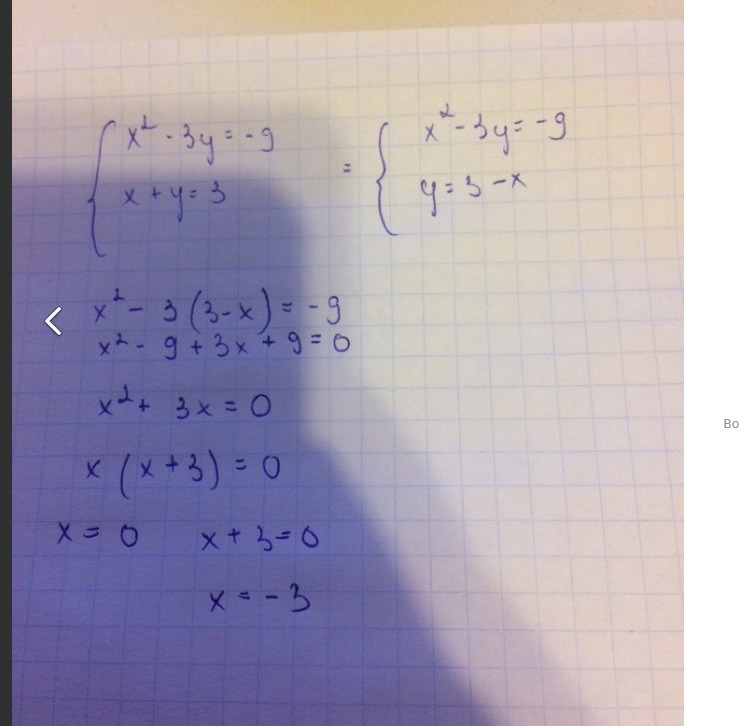 x² - 3y = -9 = x² - 3y = -9
x + y = 3 y = 3 - x
x² - 3(3-x) = -9
x² - 9 + 3x + 9 = 0
x² + 3x = 0
x(x+3) = 0
x = 0 x + 3 = 0
x = -3
Bo